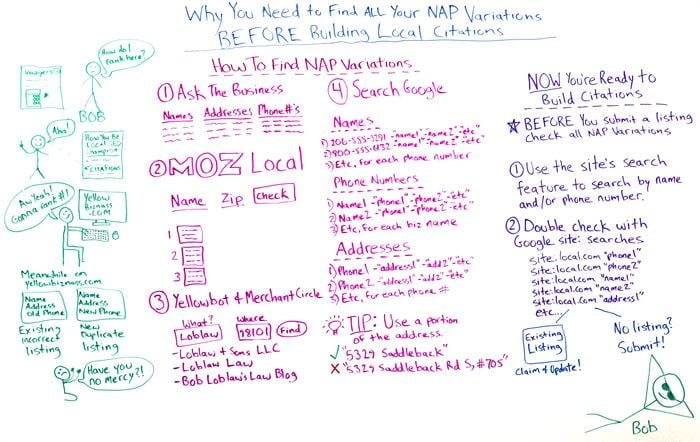 Why You Need to Find ALL Your NAP Variations
BEFORE Building Local Citations
How do I
rank here?
BOB
Aha!
How You Be
Local SEO
Champion
Citations
Aw Yeah!
Gonna rank #1!
Yellow
Biznass
.COM
Meanwhile on
yellowbiznass.com
Name
Address
Old Phone
Name
Address
New Phone
Existing
incorrect
listing
New
Duplicate
listing
Have you
no mercy?!
How To Find NAP Variations
① Ask The Business
Names Addresses Phone#'s
② MOZ Local
Name Zip check
1
2
3
③ Yellowbot & MerchantCircle
What? Where
Loblaw 98101 Find
- Loblaw & Sons LLC
- Loblaw Law
- Bob Loblaw's Law Blog
④ Search Google
Names
1) 206-555-1291 -"name1" -"name2" -"etc"
2) 800-555-6132 -"name1" -"name2" -"etc"
3) Etc, for each phone number
Phone Numbers
1) Name1 -"phone1" -"phone2" -"etc"
2) Name2 -"phone1" -"phone2" -"etc"
3) Etc, for each biz name
Addresses
1) Phone1 -"address1" -"add2" -"etc"
2) Phone2 -"address1" -"add2" -"etc"
3) Etc, for each phone #
TIP: Use a portion
of the address.
✓ "5329 Saddleback"
✗ "5329 Saddleback Rd S, #705"
NOW You're Ready to
Build Citations
★ BEFORE You submit a listing
check all NAP Variations
① Use the site's search
feature to search by name
and/or phone number.
② Double check with
Google site: searches
site:local.com "phone1"
site:local.com "phone2"
site:local.com "name1"
site:local.com "name2"
site:local.com "address1"
etc...
Existing
Listing
Claim & Update!
No listing?
Submit!
Bob